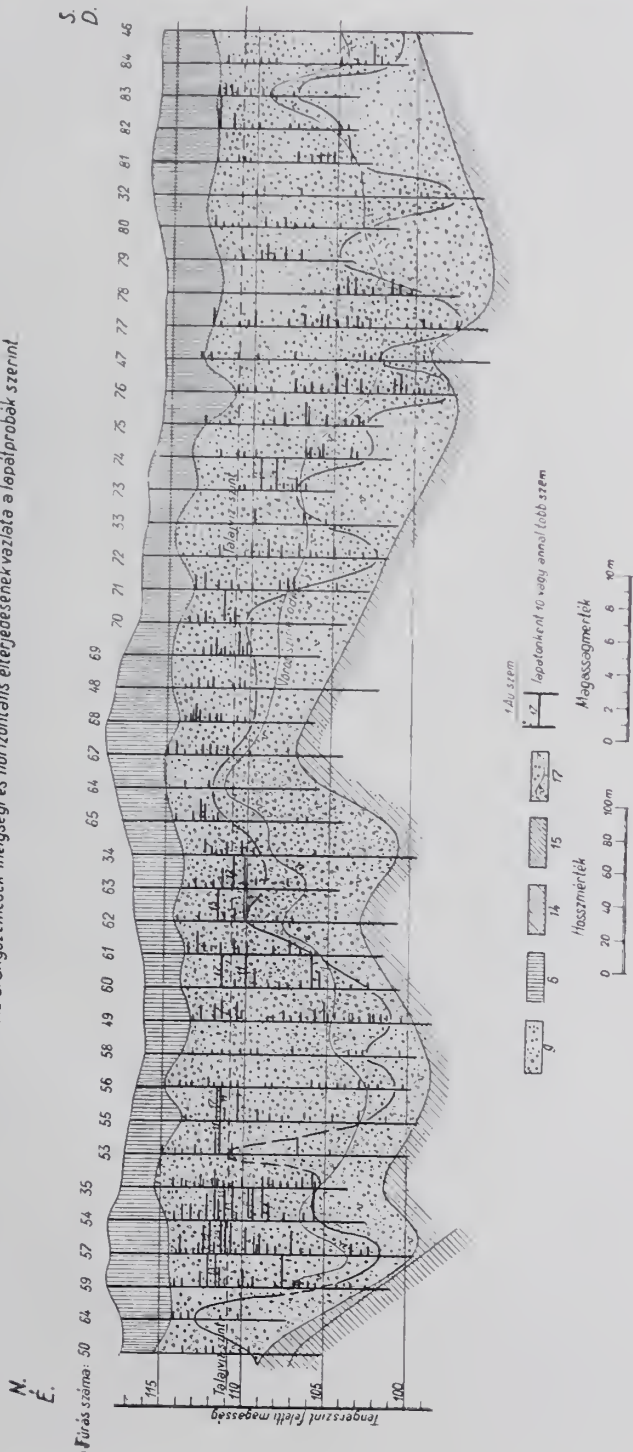 mélységi és horizontális elterjedésének vázlata a lapátpróbák szerint.
N.
É.
S.
D.
Fúrás száma: 50 64 59 57 54 35 53 55 56 58 49 60 61 62 63 34 65 64 67 68 48 69 70 71 72 33 73 74 75 76 47 77 78 79 80 32 81 82 83 84 46
Tengerszint feletti magasság
115
110
105
100
Talajvíz szint
Talajvíz szint
1 Au szem
lapátonként 10 vagy annál több szem
9 6 14 15 17
Hosszmérték
0 20 40 60 80 100m
Magasságmérték
0 2 4 6 8 10m